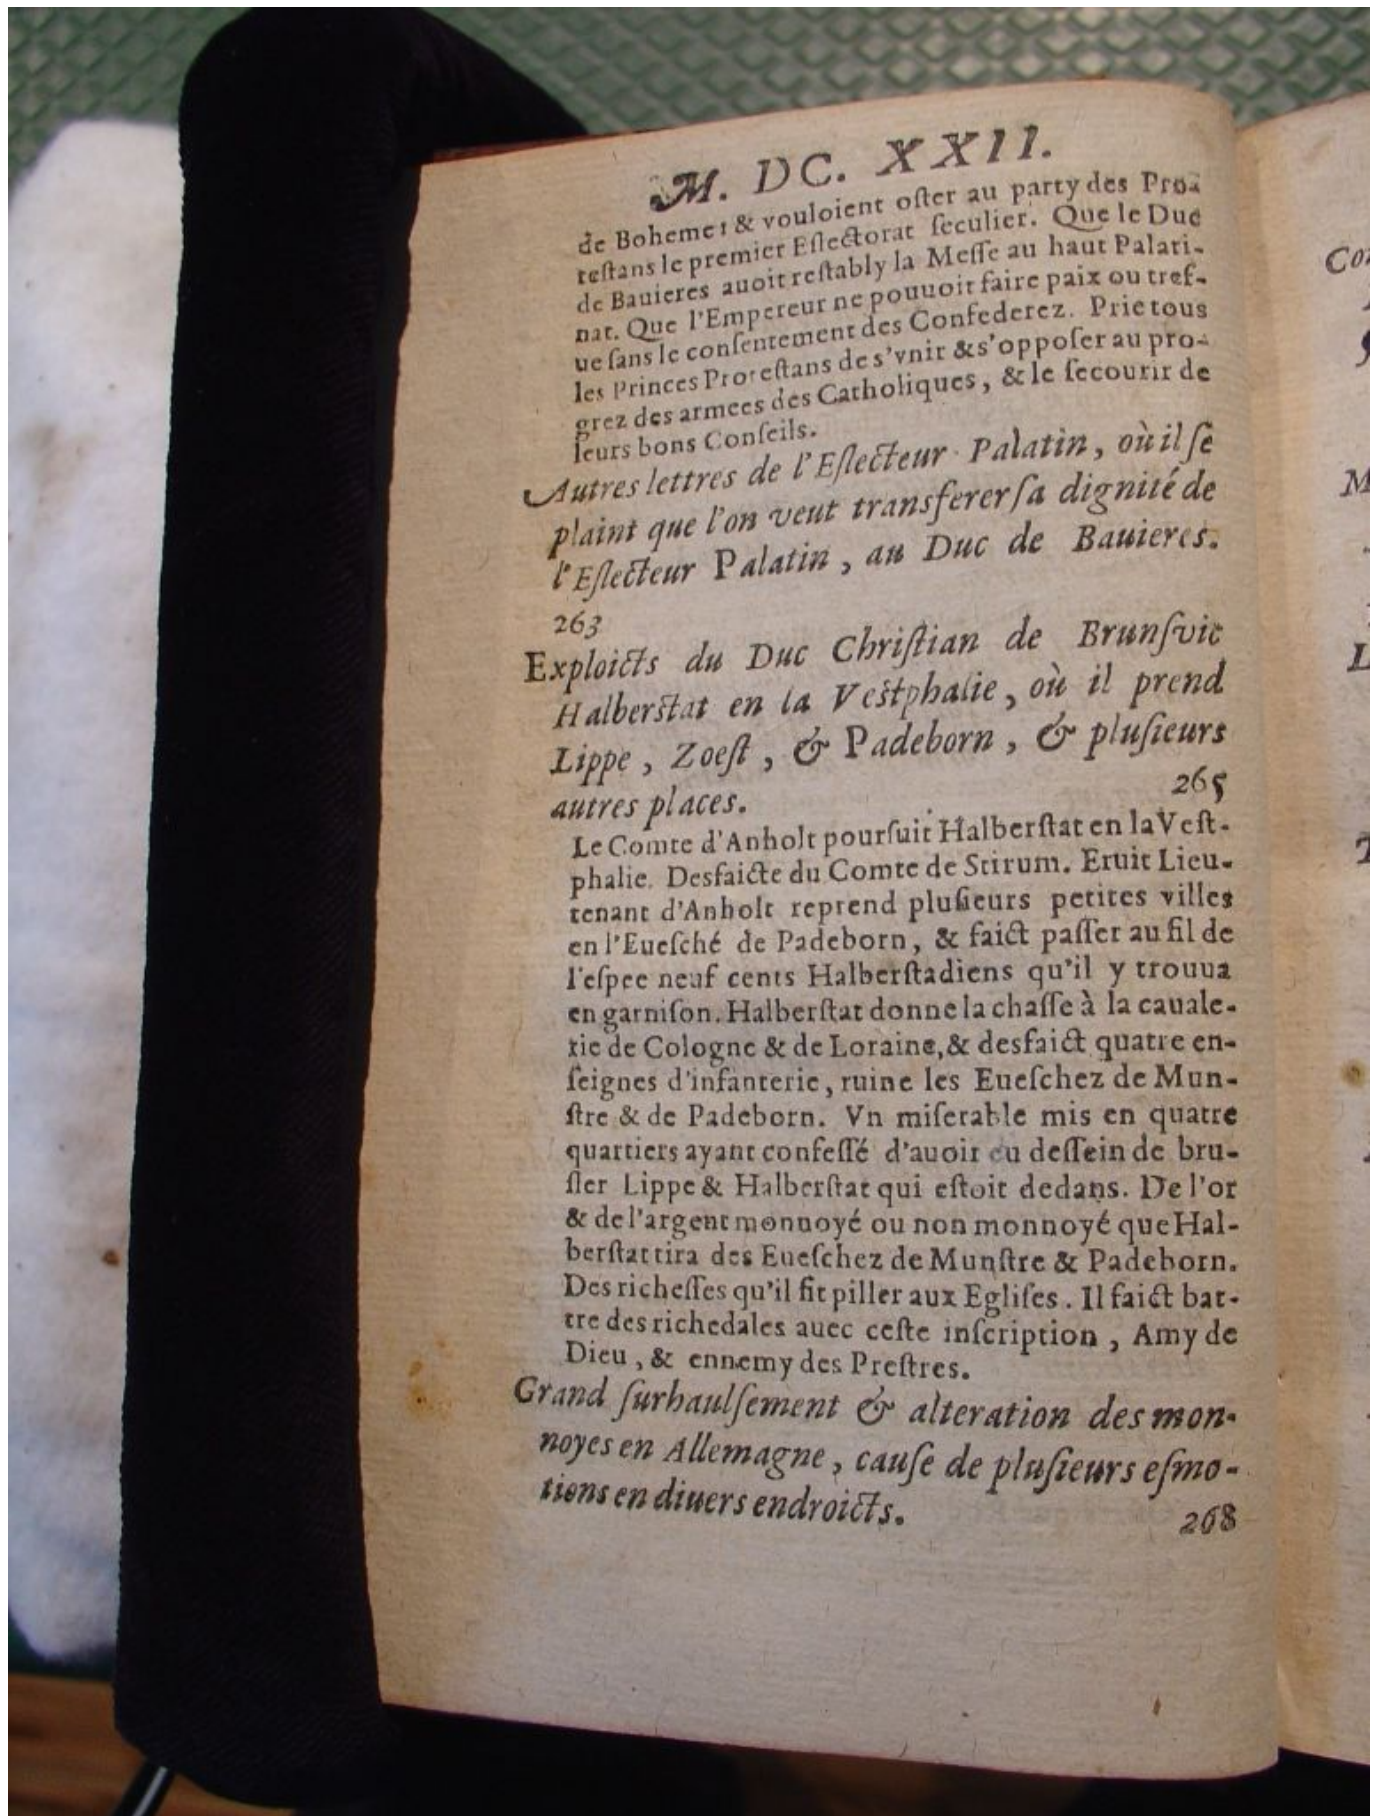 M. DC. XXII.
de Boheme: & vouloient oſter au party des Pro-
teſtans le premier Eſlectorat ſeculier. Que le Duc
de Bauieres auoit reſtably la Meſſe au haut Palati-
nat. Que l'Empereur ne pouuoit faire paix ou treſ-
ue ſans le conſentement des Confederez. Prie tous
les Princes Proteſtans de s'vnir & s'oppoſer au pro-
grez des armees des Catholiques, & le ſecourir de
leurs bons Conſeils.
Autres lettres de l'Eſlecteur Palatin, où il ſe
plaint que l'on veut transferer ſa dignité de
l'Eſlecteur Palatin, au Duc de Bauieres.
263
Exploicts du Duc Chriſtian de Brunſvic
Halberſtat en la Veſtphalie, où il prend
Lippe, Zoeſt, & Padeborn, & pluſieurs
autres places. 265
Le Comte d'Anholt pourſuit Halberſtat en la Veſt-
phalie. Desfaicte du Comte de Stirum. Eruit Lieu-
tenant d'Anholt reprend pluſieurs petites villes
en l'Eueſché de Padeborn, & faict paſſer au fil de
l'eſpee neuf cents Halberſtadiens qu'il y trouua
en garniſon. Halberſtat donne la chaſſe à la cauale-
rie de Cologne & de Loraine, & desfaict quatre en-
ſeignes d'infanterie, ruine les Eueſchez de Mun-
ſtre & de Padeborn. Vn miſerable mis en quatre
quartiers ayant confeſſé d'auoir eu deſſein de bru-
ſler Lippe & Halberſtat qui eſtoit dedans. De l'or
& de l'argent monnoyé ou non monnoyé que Hal-
berſtat tira des Eueſchez de Munſtre & Padeborn.
Des richeſſes qu'il fit piller aux Egliſes. Il faict bat-
tre des richedales auec ceſte inſcription, Amy de
Dieu, & ennemy des Preſtres.
Grand ſurhaulſement & alteration des mon-
noyes en Allemagne, cauſe de pluſieurs eſmo-
tions en diuers endroicts. 268